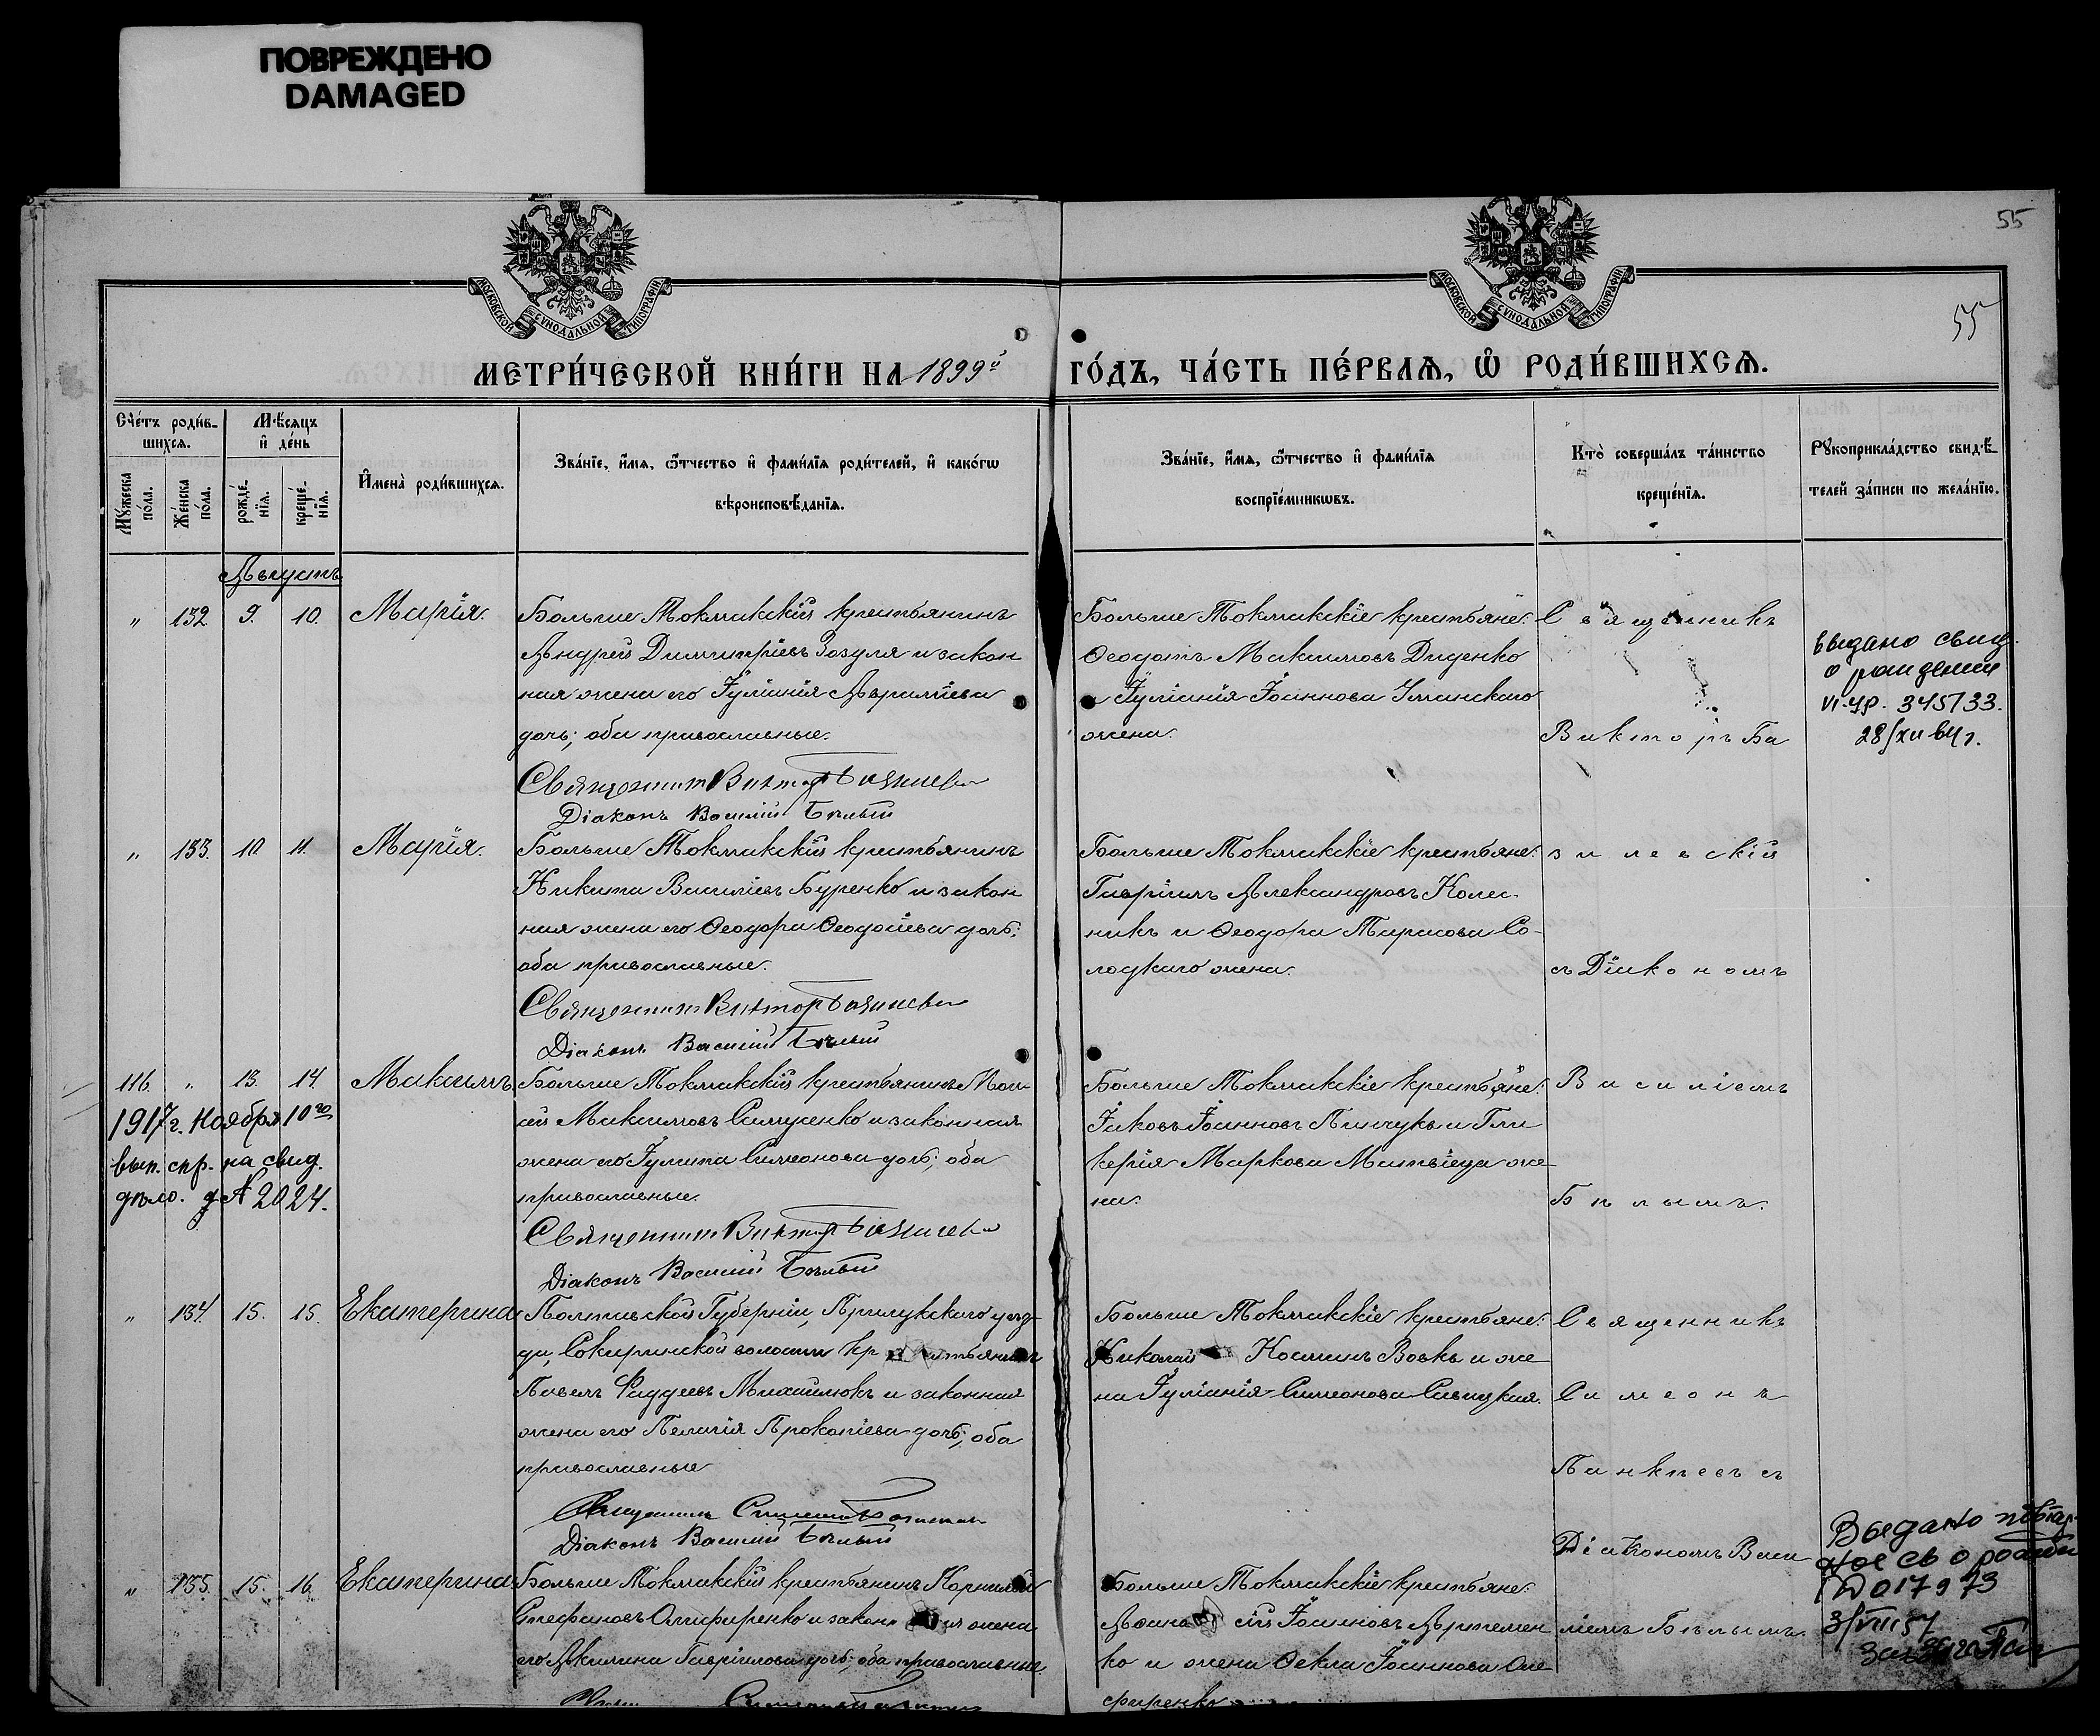 ПОВРЕЖДЕНО
DAMAGED
55
55
МОСКОВСКОЙ СѴНОДАЛЬНОЙ ТИПОГРАФІИ
МОСКОВСКОЙ СѴНОДАЛЬНОЙ ТИПОГРАФІИ
МЕТРИ́ЧЕСКОЙ КНИ́ГИ НА 1899й ГО́ДЪ, ЧА́СТЬ ПЕ́РВАѦ, Ѽ РОДИ́ВШИХСѦ.
Сче́тъ роди́в-
шихсѧ.
Мꙋ́жеска по́ла.
Же́нска по́ла.
Мѣ́сѧцъ
и҆ де́нь
рожде́-
нїѧ.
креще́-
нїѧ.
И҆мена̀ роди́вшихсѧ.
Зва́нїе, и҆́мѧ, ѻ҆́тчество и҆ фами́лїѧ роди́телей, и҆ како́гѡ
вѣроисповѣ́данїѧ.
Зва́нїе, и҆́мѧ, ѻ҆́тчество и҆ фами́лїѧ
воспрїе́мникѡвъ.
Кто̀ соверша́лъ та́инство
креще́нїѧ.
Рꙋкоприкла́дство свидѣ́-
телей за́писи по жела́нїю.
Августъ
" 132 9. 10. Марія.
Больше Токмакскій крестьянинъ
Андрей Димитріевъ Зозуля и закон
ная жена его Іуліанія Авраміева
дочь; оба православные.
Священникъ Викторъ Базилевскій
Діаконъ Василій Бѣлый
Больше Токмакскіе крестьяне:
Ѳеодотъ Максимовъ Диденко
и Іуліанія Іоаннова Уманскаго
жена.
Священникъ
Викторъ Ба
выдано свид.
о рождении
VI-УР. 345733.
" 133. 10. 11. Марія.
Больше Токмакскій крестьянинъ
Никита Василіевъ Буренко и закон
ная жена его Ѳеодора Ѳеодосіева дочь;
оба православные.
Священникъ Викторъ Базилевскій
Діаконъ Василій Бѣлый
Больше Токмакскіе крестьяне:
Гавріилъ Александровъ Колес-
никъ и Ѳеодора Тарасова Со-
лодкаго жена.
зилевскій
съ Діакономъ
116. " 13. 14. Максимъ
1917 г. Ноября 10го
вып. спр. на свид.
дѣло. № 2024.
Больше Токмакскій крестьянинъ Мои-
сей Максимовъ Самусенко и законная
жена его Іулита Симеонова дочь; оба
православные.
Священникъ Викторъ Базилевскій
Діаконъ Василій Бѣлый
Больше Токмакскіе крестьяне:
Іаковъ Іоанновъ Пинчукъ и Гли
керія Маркова Матвіеца же-
на.
Василіемъ
Бѣлымъ.
" 134. 15. 15. Екатерина
Полтавской Губерніи, Прилукскаго уѣз-
да, Сокиринской волости кр естьянинъ
Павелъ Фаддеевъ Михайлюкъ и законная
жена его Пелагія Прокопіева дочь; оба
православные
Священникъ Симеонъ
Діаконъ Василій Бѣлый
Больше Токмакскіе крестьяне:
Николай Косминъ Вовкъ и же
на Іуліанія Симеонова Савицкая.
Священникъ
Симеонъ
Панкеевъ съ
Діакономъ Васи
" 135. 15. 16. Екатерина
Больше Токмакскій крестьянинъ Корнилій
Стефановъ Олефиренко и закон ая жена
его Акилина Гавріилова дочь; оба православные
Больше Токмакскіе крестьяне:
Аѳана сій Іоанновъ Артемен
ко и жена Ѳекла Іоаннова Оле
фиренко
ліемъ Бѣлымъ.
Выдано повтор
ное св о рожде
№ 017973
3/VIII 57